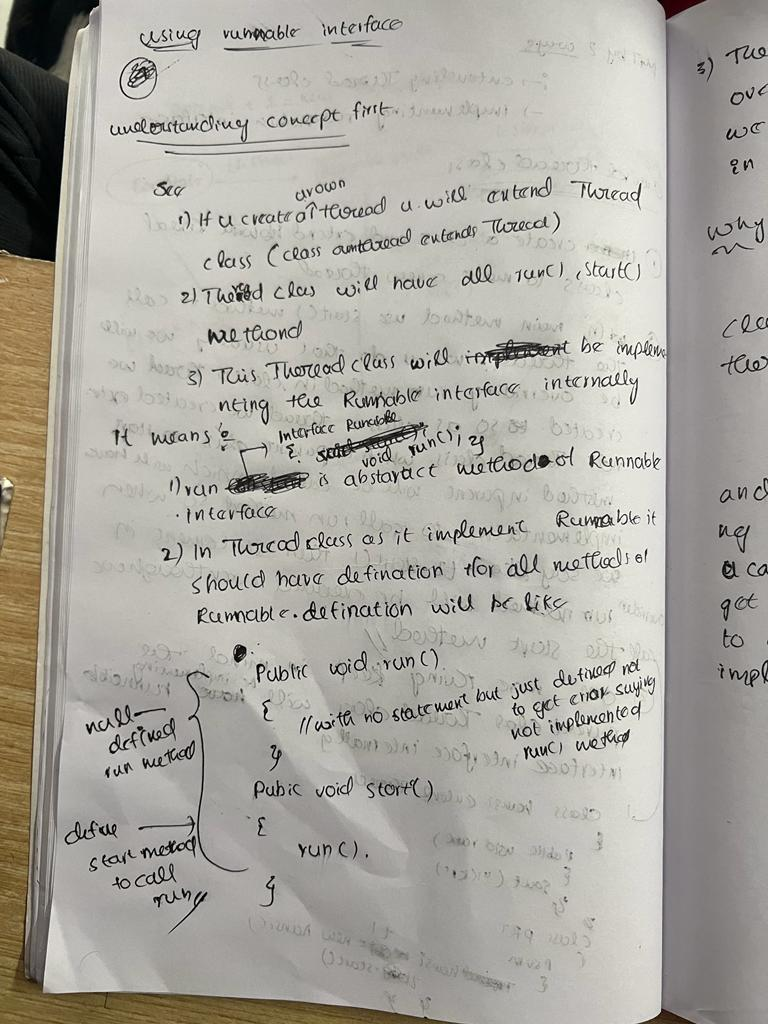 using runnable interface
understanding concept first.
See
urown
1) If u create a thread u will extend Thread
class (class ownthread extends Thread)
2) Thered clas will have all run(), start()
methond
3) This Theread class will be impleme
nting the Runnable interface internally
it means :-
Interface Runable
{ void run(); }
1) run is abstaract method of Runnable
interface
2) In Thread class as it implement Runnable it
should have defination for all methods of
Runnable. defination will be like
Public void run().
{
//with no statement but just defined not
to get error saying
not implemented
run() method
}
null
defined
run method
Pubic void start()
{
run().
}
define
start method
to call
run
3) The
ove
we
in
why
cla
the
and
ng
a ca
get
to
impl